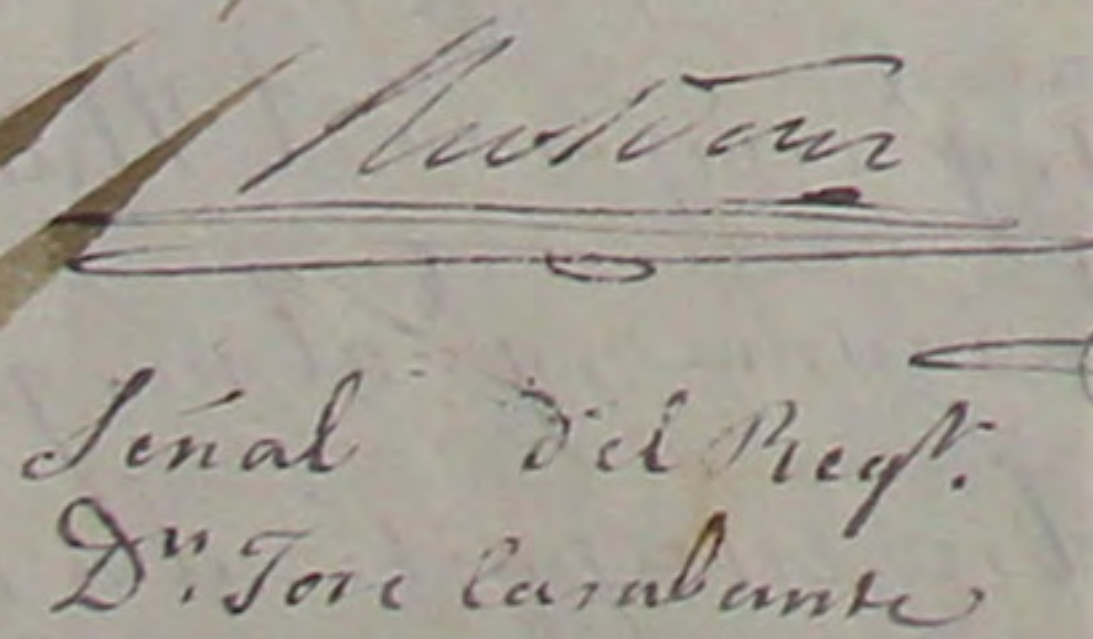 Señal del Regr.
Dn. Jose Carabante